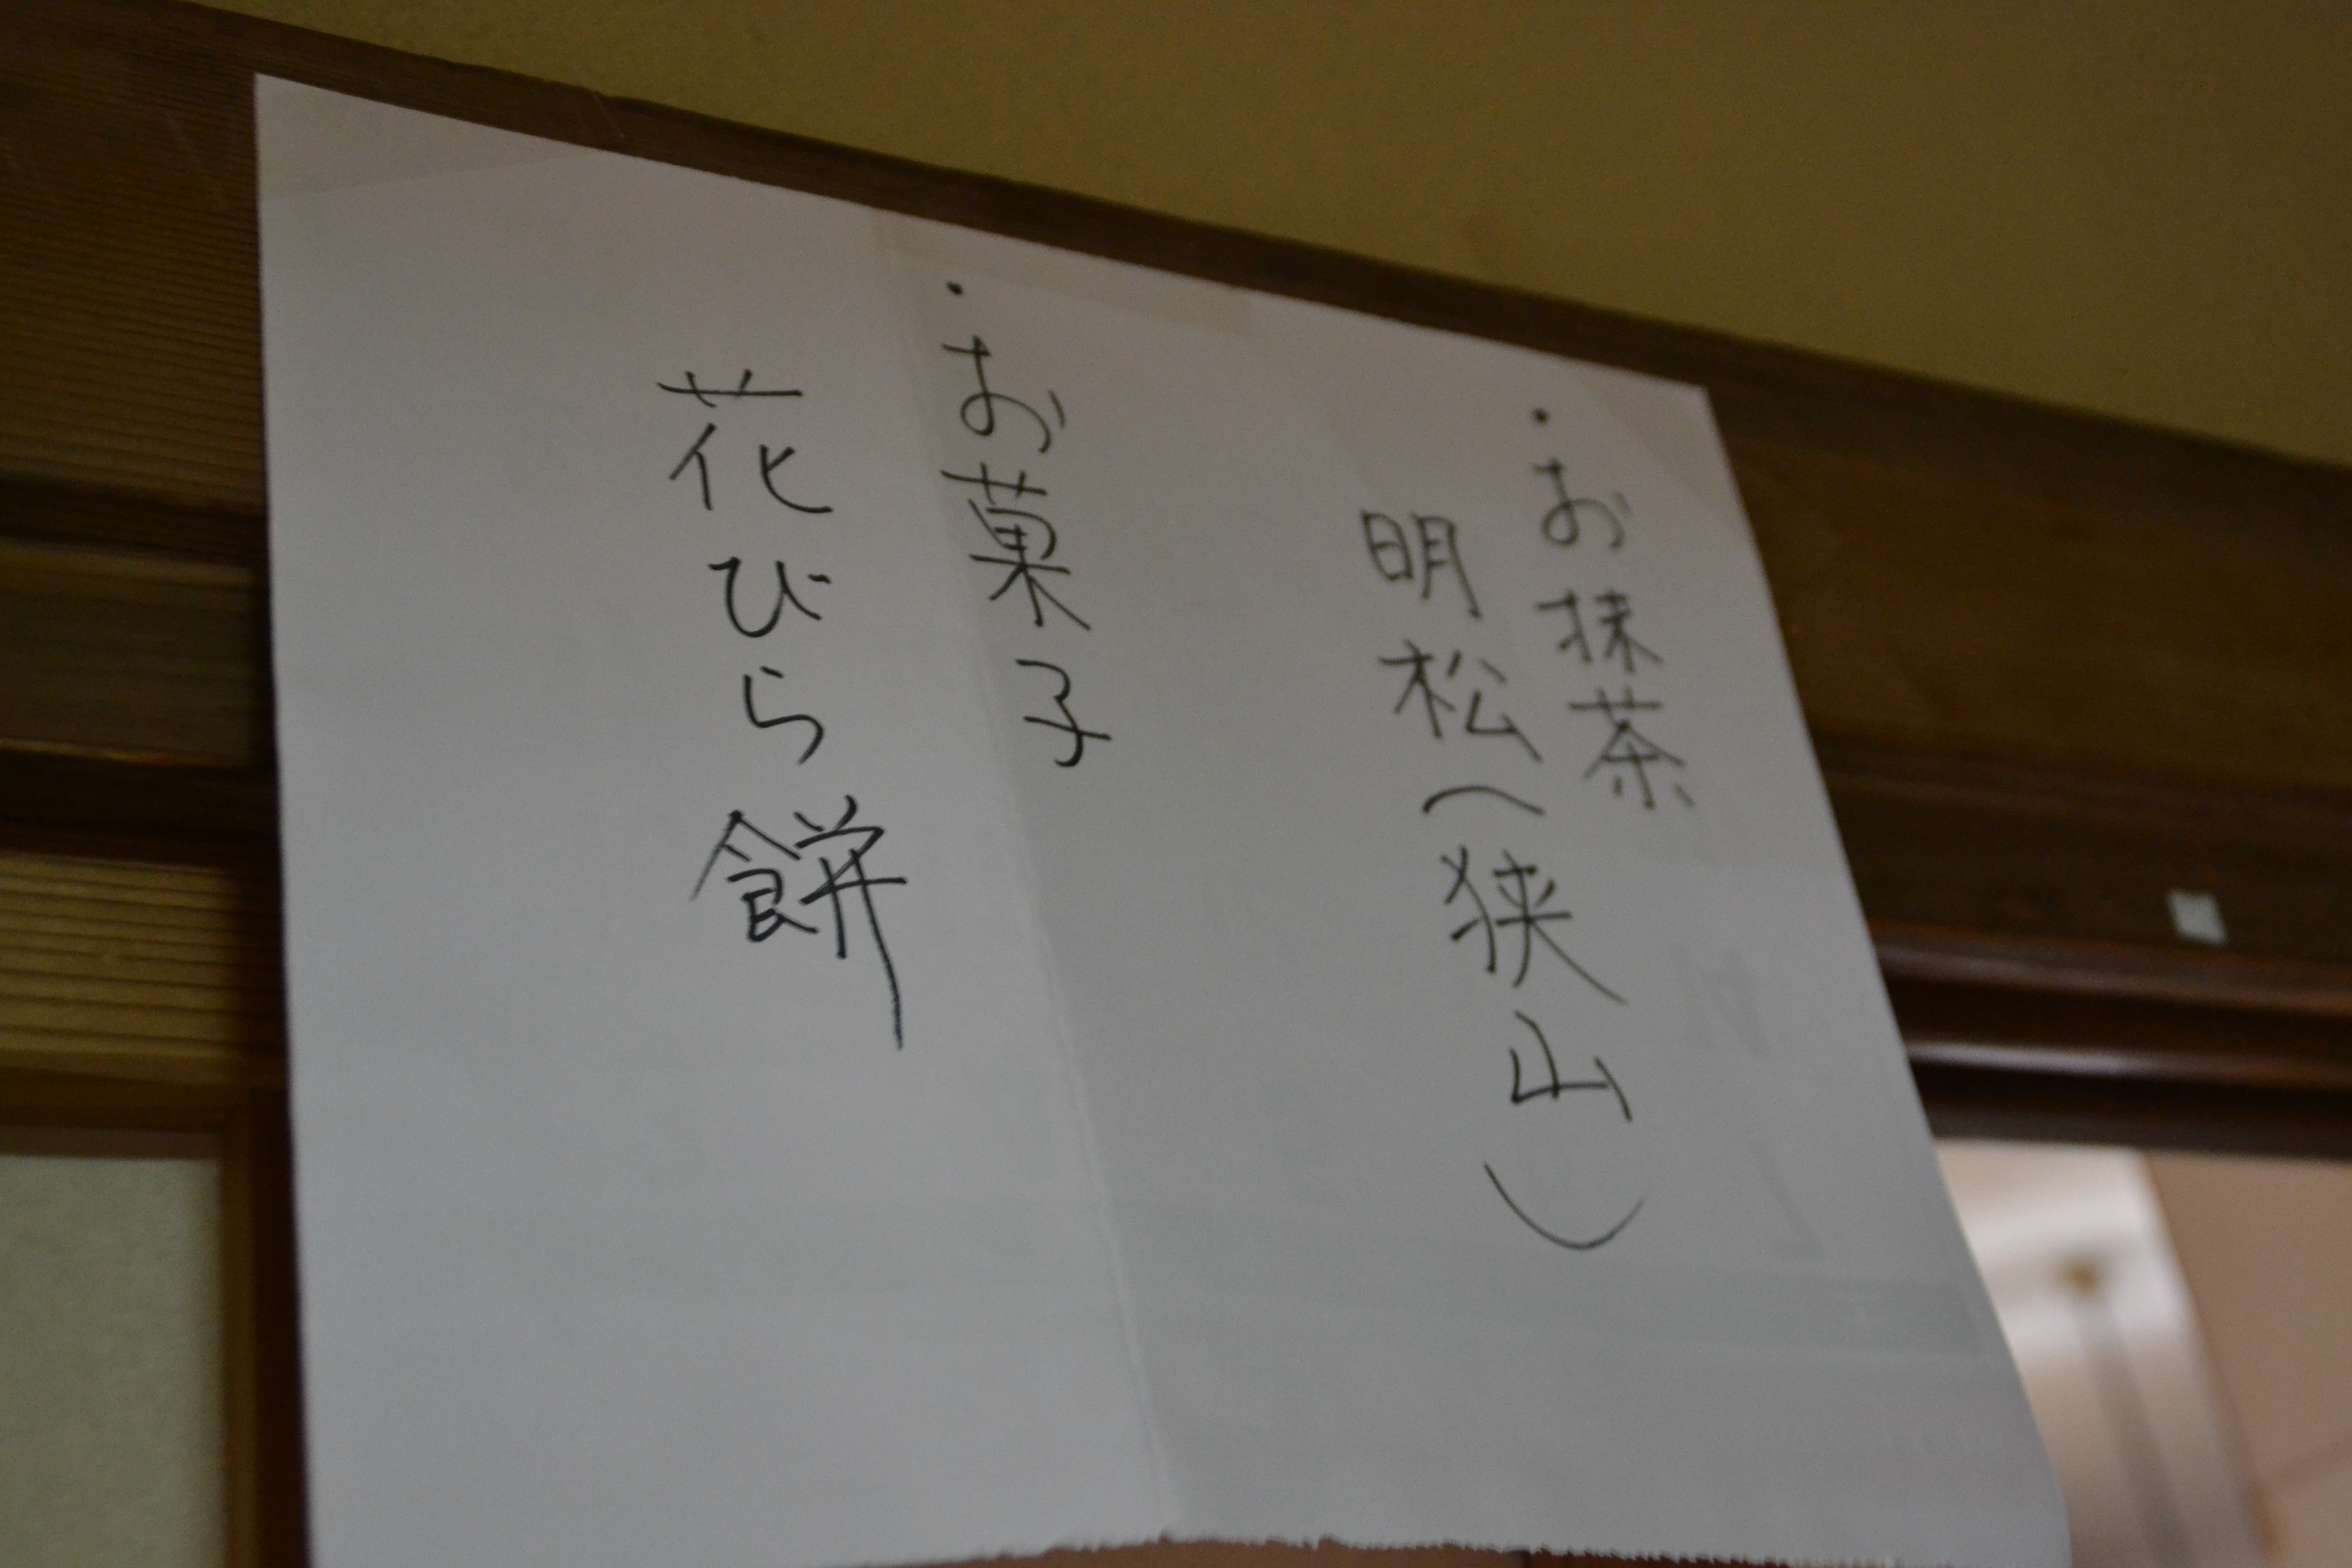 ・お抹茶
明松(狭山)
・お菓子
花びら餅